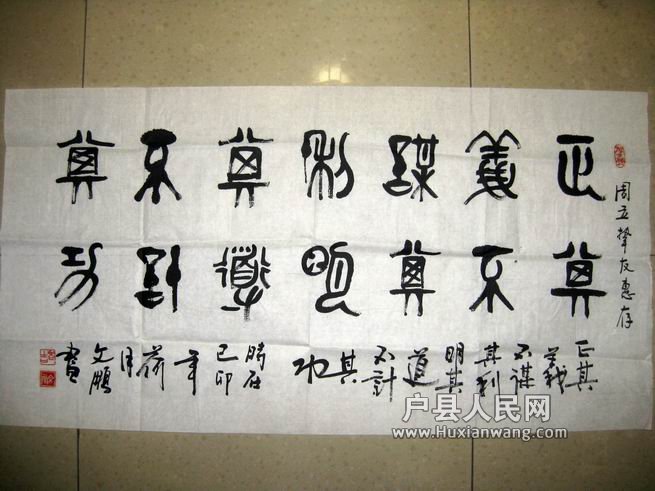 周立挚友惠存
正其
義不
謀其
利明
其道
不計
其功
正其
義
不謀
其利
明其
道
不計
其
功
時在
己卯
年
荷
月
文鵬
書
户县人民网
www.Huxianwang.com